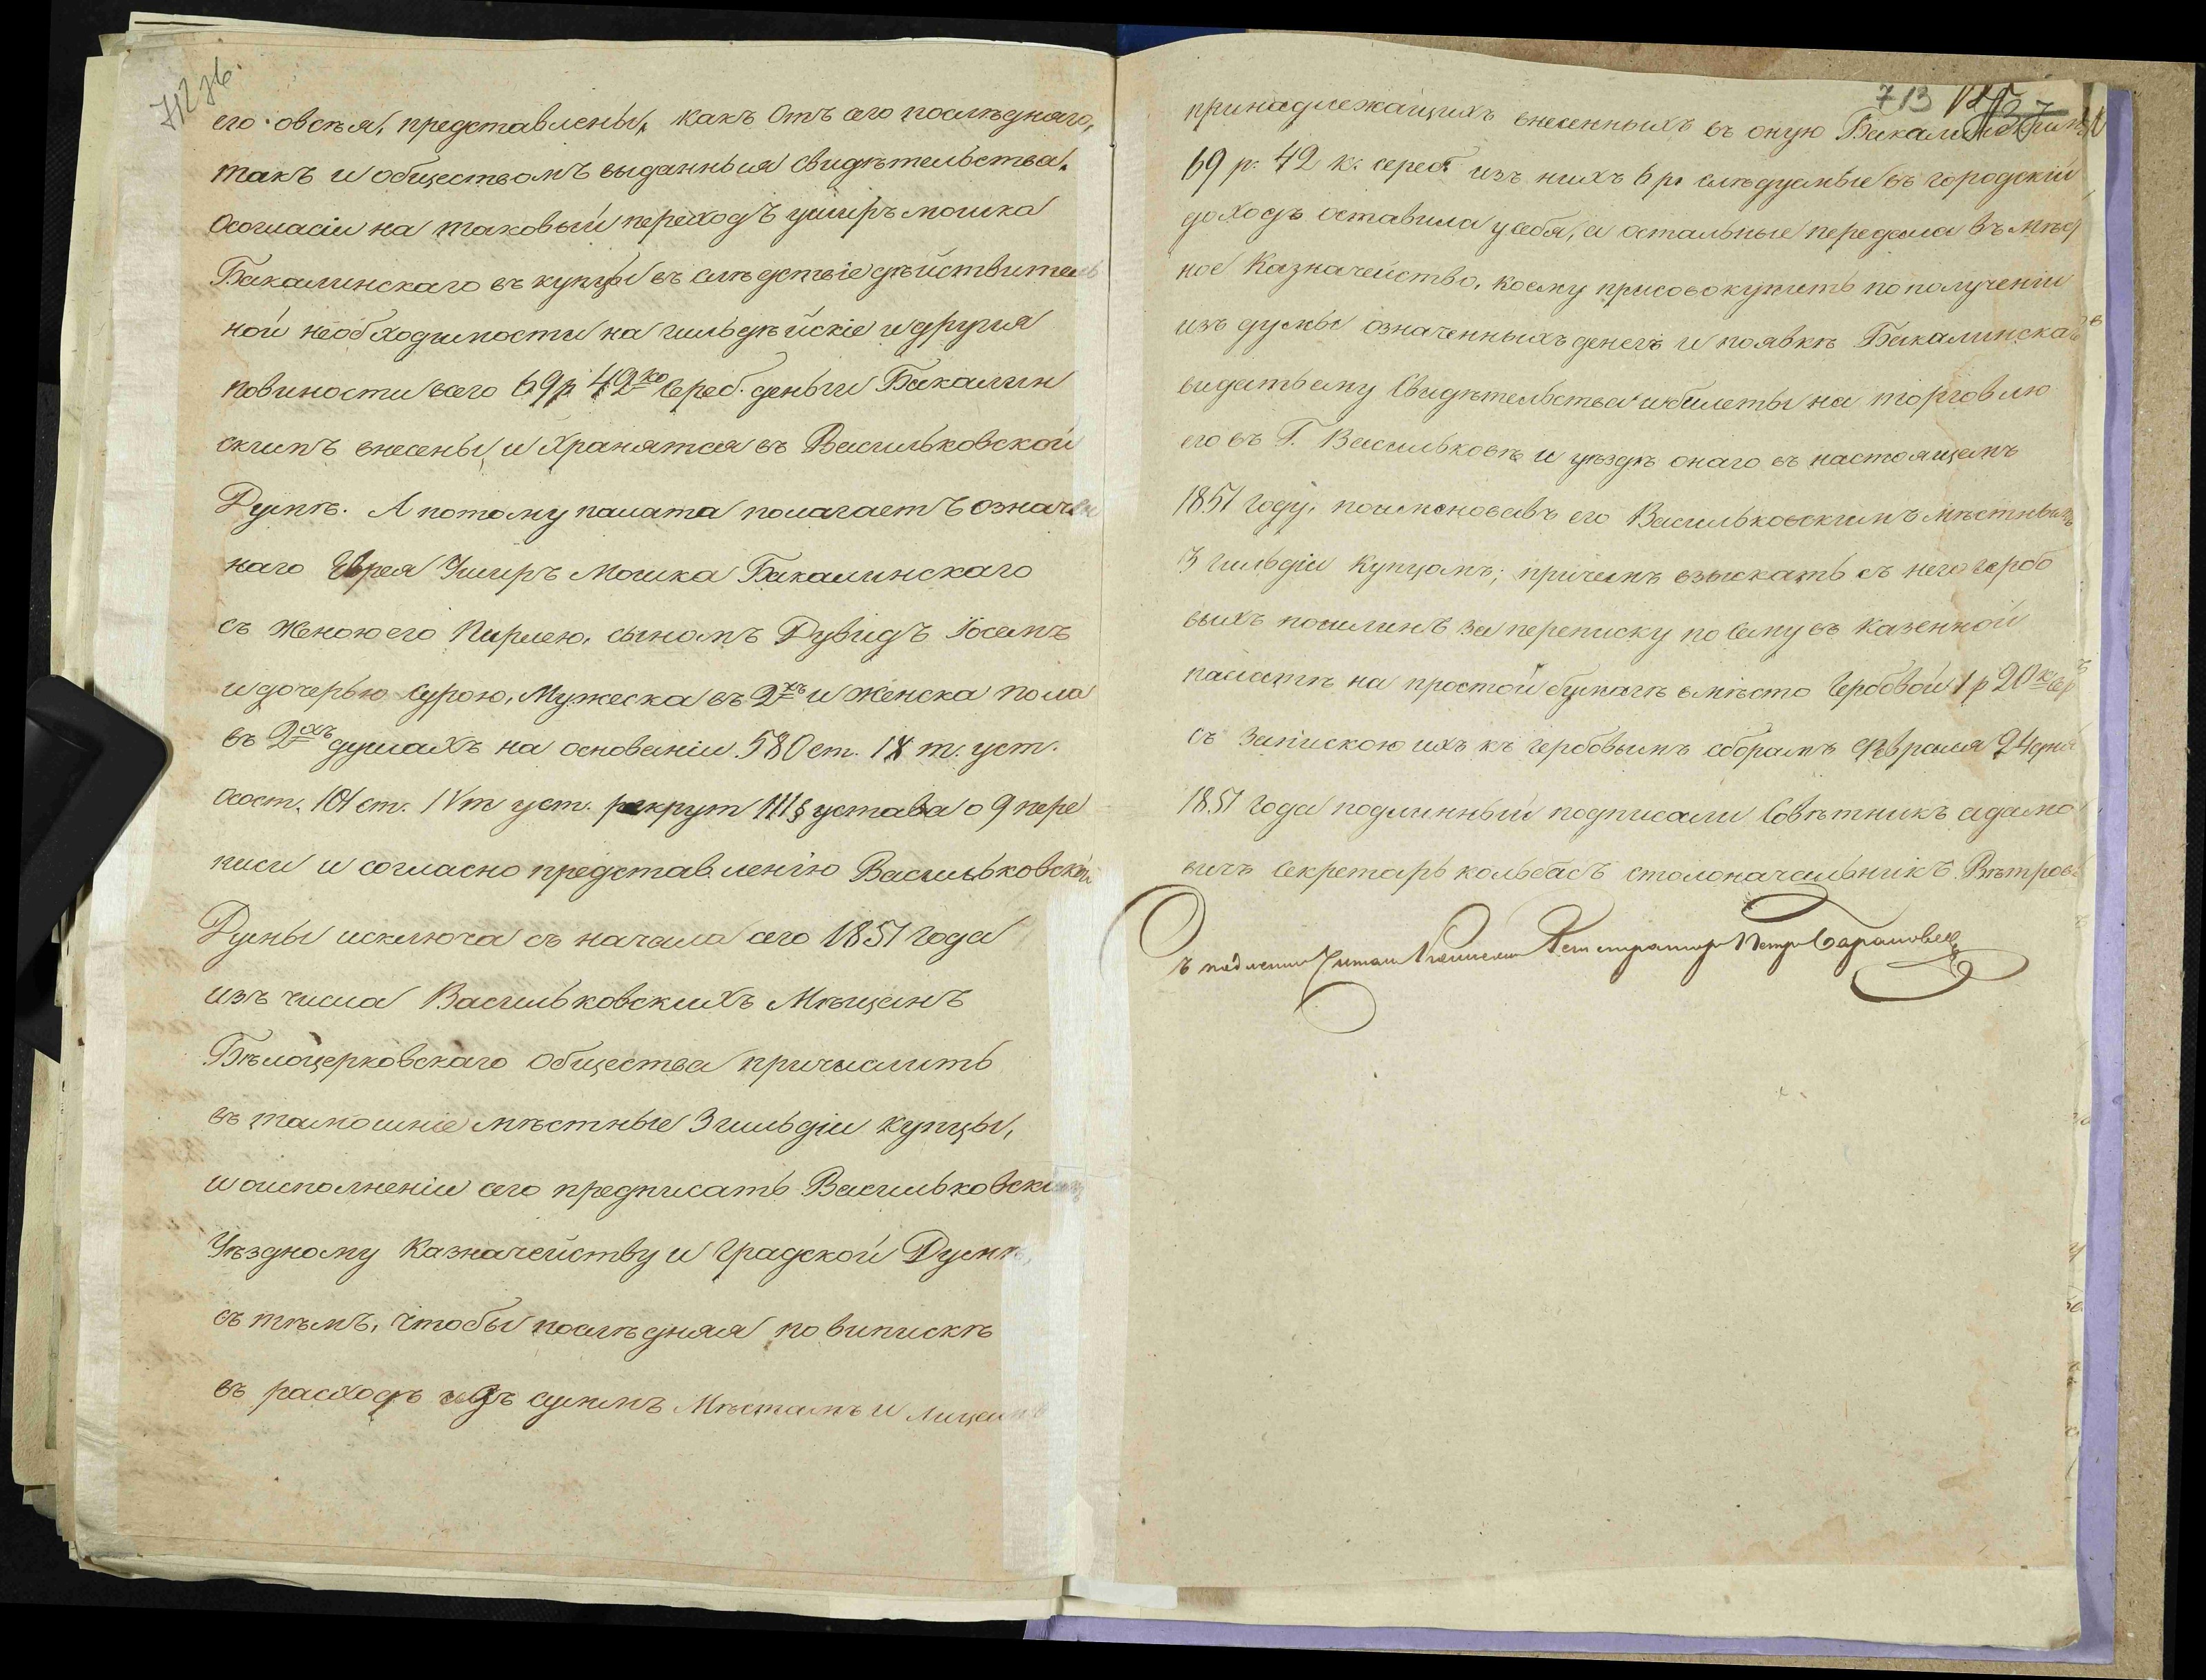 712 об.
его овсѣя, представлены, какъ Отъ сего послѣдняго,
такъ и обществомъ выданныя Свидѣтельства.
Осогласіи на таковый переходъ уширъ мошка
Бакалинскаго въ купцы въ слѣдствіе дѣйствитель
ной необходимости на гильдѣйскіе и другія
повиности всего 69 р 42 ко Сереб. деньги Бакалин
скимъ внесены и хранятся въ Васильковской
Думѣ. А потому палата полагаетъ означен
наго Еврея Уширъ Мошка Бакалинскаго
съ Женою его Пирлею, сыномъ Дувидъ Іосемъ
и дочерью Сурою, Мужеска въ 2хъ и Женска пола
въ 2охъ душахъ на основаніи 580 ст. IX т. уст.
Осост. 101 ст. IV т уст. рекрут 111 § устава о 9 пере
писи и согласно представленію Васильковской
Думы исключа съ начала сего 1851 года
изъ числа Васильковскихъ Мѣщанъ
Бѣлоцерковскаго Общества причислить
въ тамошніе мѣстные 3 гильдіи купцы,
и оисполненіи сего предписать Васильковскимъ
Уѣздному Казначейству и Градской Думѣ,
съ тѣмъ, чтобы послѣдняя по випискѣ
въ расходъ изъ суммъ Мѣстамъ и Лицамъ
713
принадлежащихъ внесенныхъ въ оную Бакалинскимъ
69 р. 42 к. сереб. изъ нихъ 6 р. слѣдуемые въ городскій
доходъ оставила у себя, а остальные передала въ мѣст
ное Казначейство, коему присовокупить по полученіи
изъ думы означенныхъ денегъ и появкѣ Бакалинскаго
видать ему Свидѣтельства и билеты на торговлю
его въ Г. Васильковѣ и уѣздѣ онаго въ настоящемъ
1851 году, поименовавъ его Васильковскимъ мѣстнымъ
3 гильдіи Купцомъ; причемъ взыскать съ него гербо
выхъ пошлинъ за переписку по Сему въ Казенной
палатѣ на простой бумагѣ вмѣсто Гербовой 1 р 20 к Сер
съ Запискою ихъ къ гербовымъ сборамъ Февраля 24 дня
1851 Года подлинный подписали Совѣтникъ адамо
вичъ Секретарь кольбасъ столоначальникъ Вѣтровъ
Съ подлиннымъ Читалъ Регистраторъ Петръ Барановск